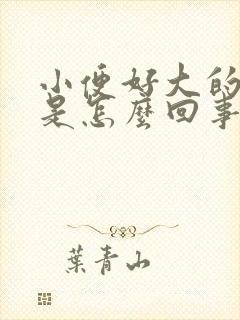 小便好大的
是怎麼回事
葉青山